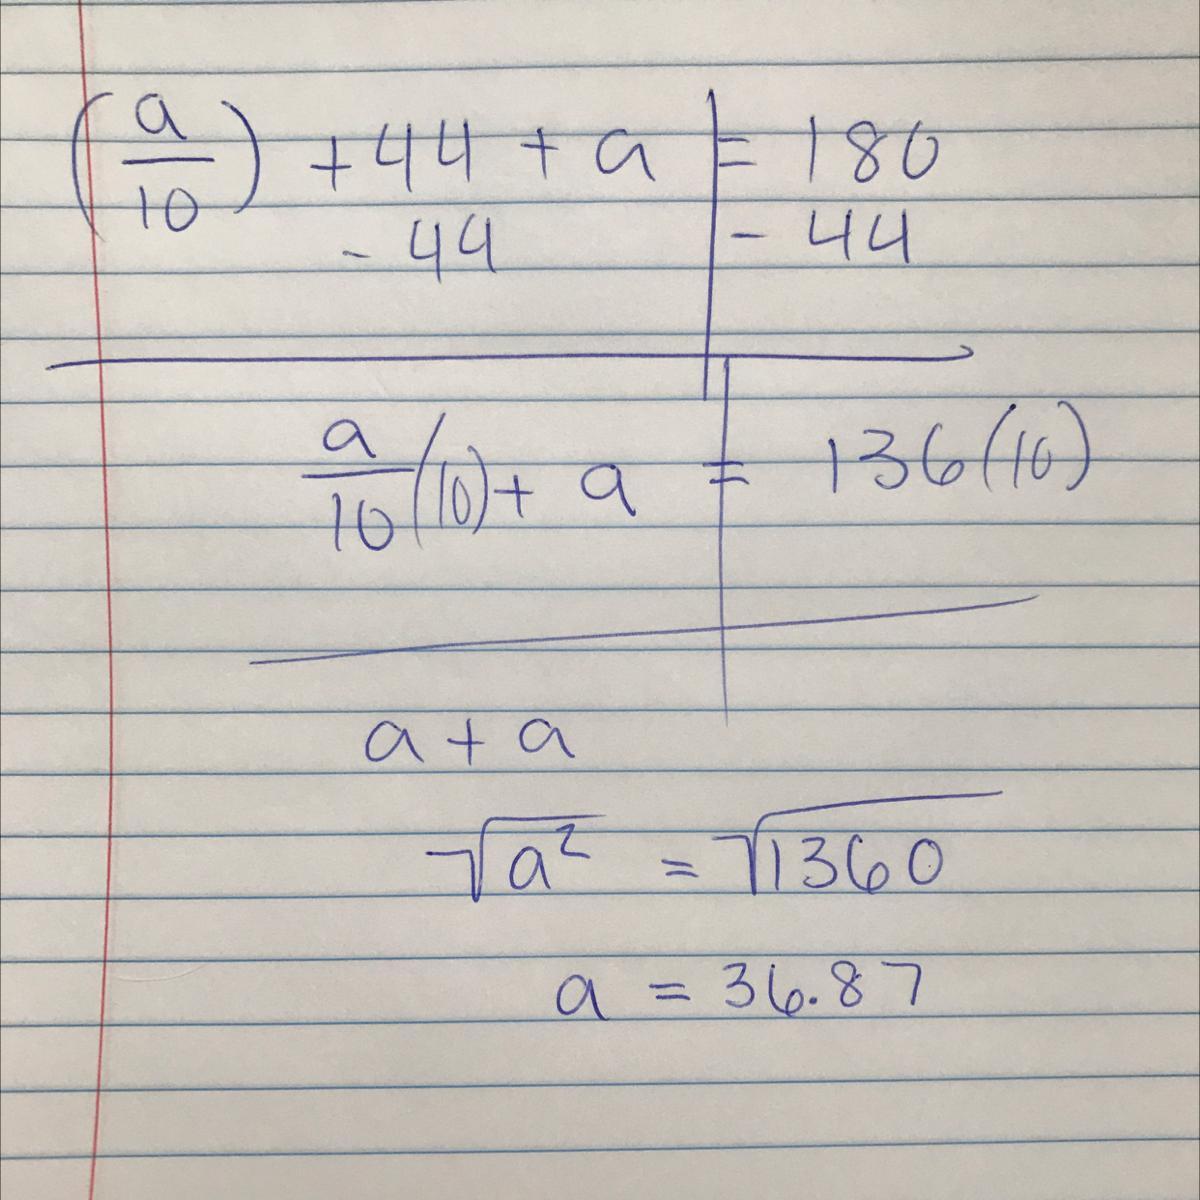 (a/10) + 44 + a = 180
- 44 - 44
a/10 (10) + a = 136 (10)
a + a
√a² = √1360
a = 36.87